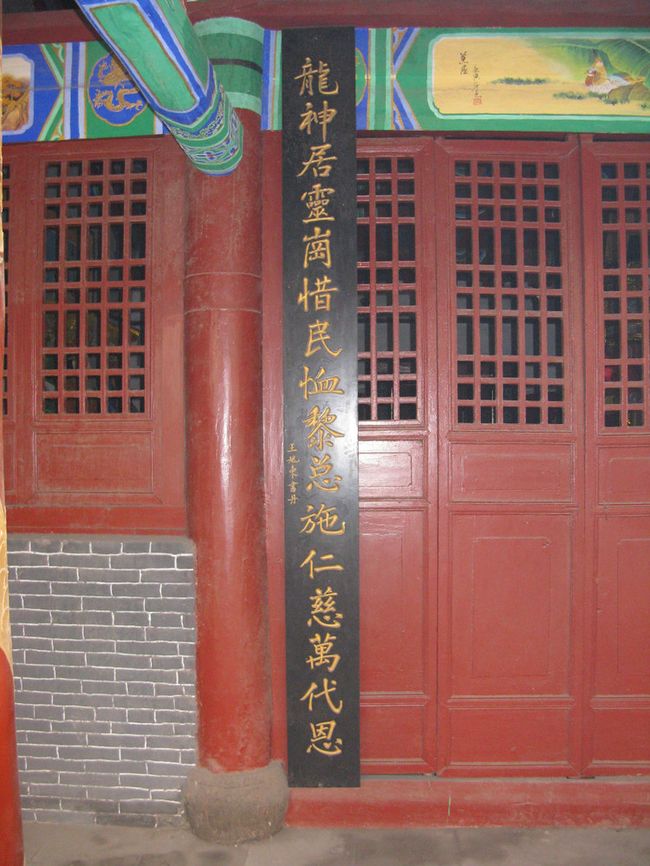 龍神居靈崗惜民恤黎总施仁慈萬代恩